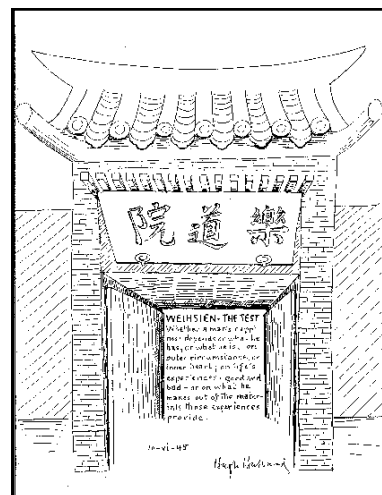 樂道院
WEIHSIEN - THE TEST
Whether a man's happi-
ness depends on what he
has, or what he is; on
outer circumstance, or
inner heart; on life's
experiences - good and
bad - or on what he
makes out of the mater-
ials those experiences
provide.
Hugh Hubbard